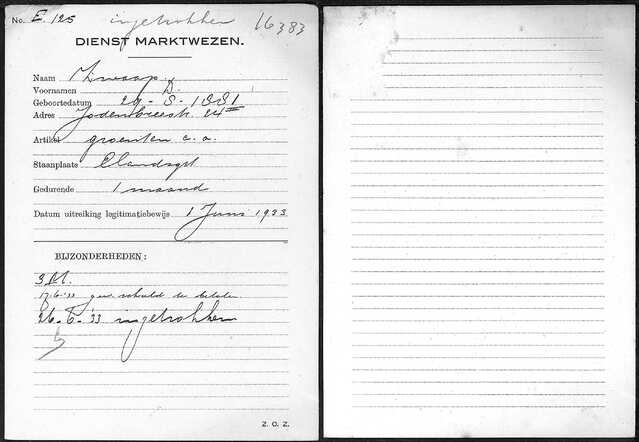 No. E. 125 ingetrokken 16383
DIENST MARKTWEZEN.
Naam Zwaap.
Voornamen D.
Geboortedatum 29-8-1881
Adres Jodenbreestr. 24 III
Artikel groenten e.a.
Staanplaats Elandsgt
Gedurende 1 maand
Datum uitreiking legitimatiebewijs 1 Juni 1933
BIJZONDERHEDEN:
17-6-'33 schuld te betalen
26-6-'33 ingetrokken
Z. O. Z.